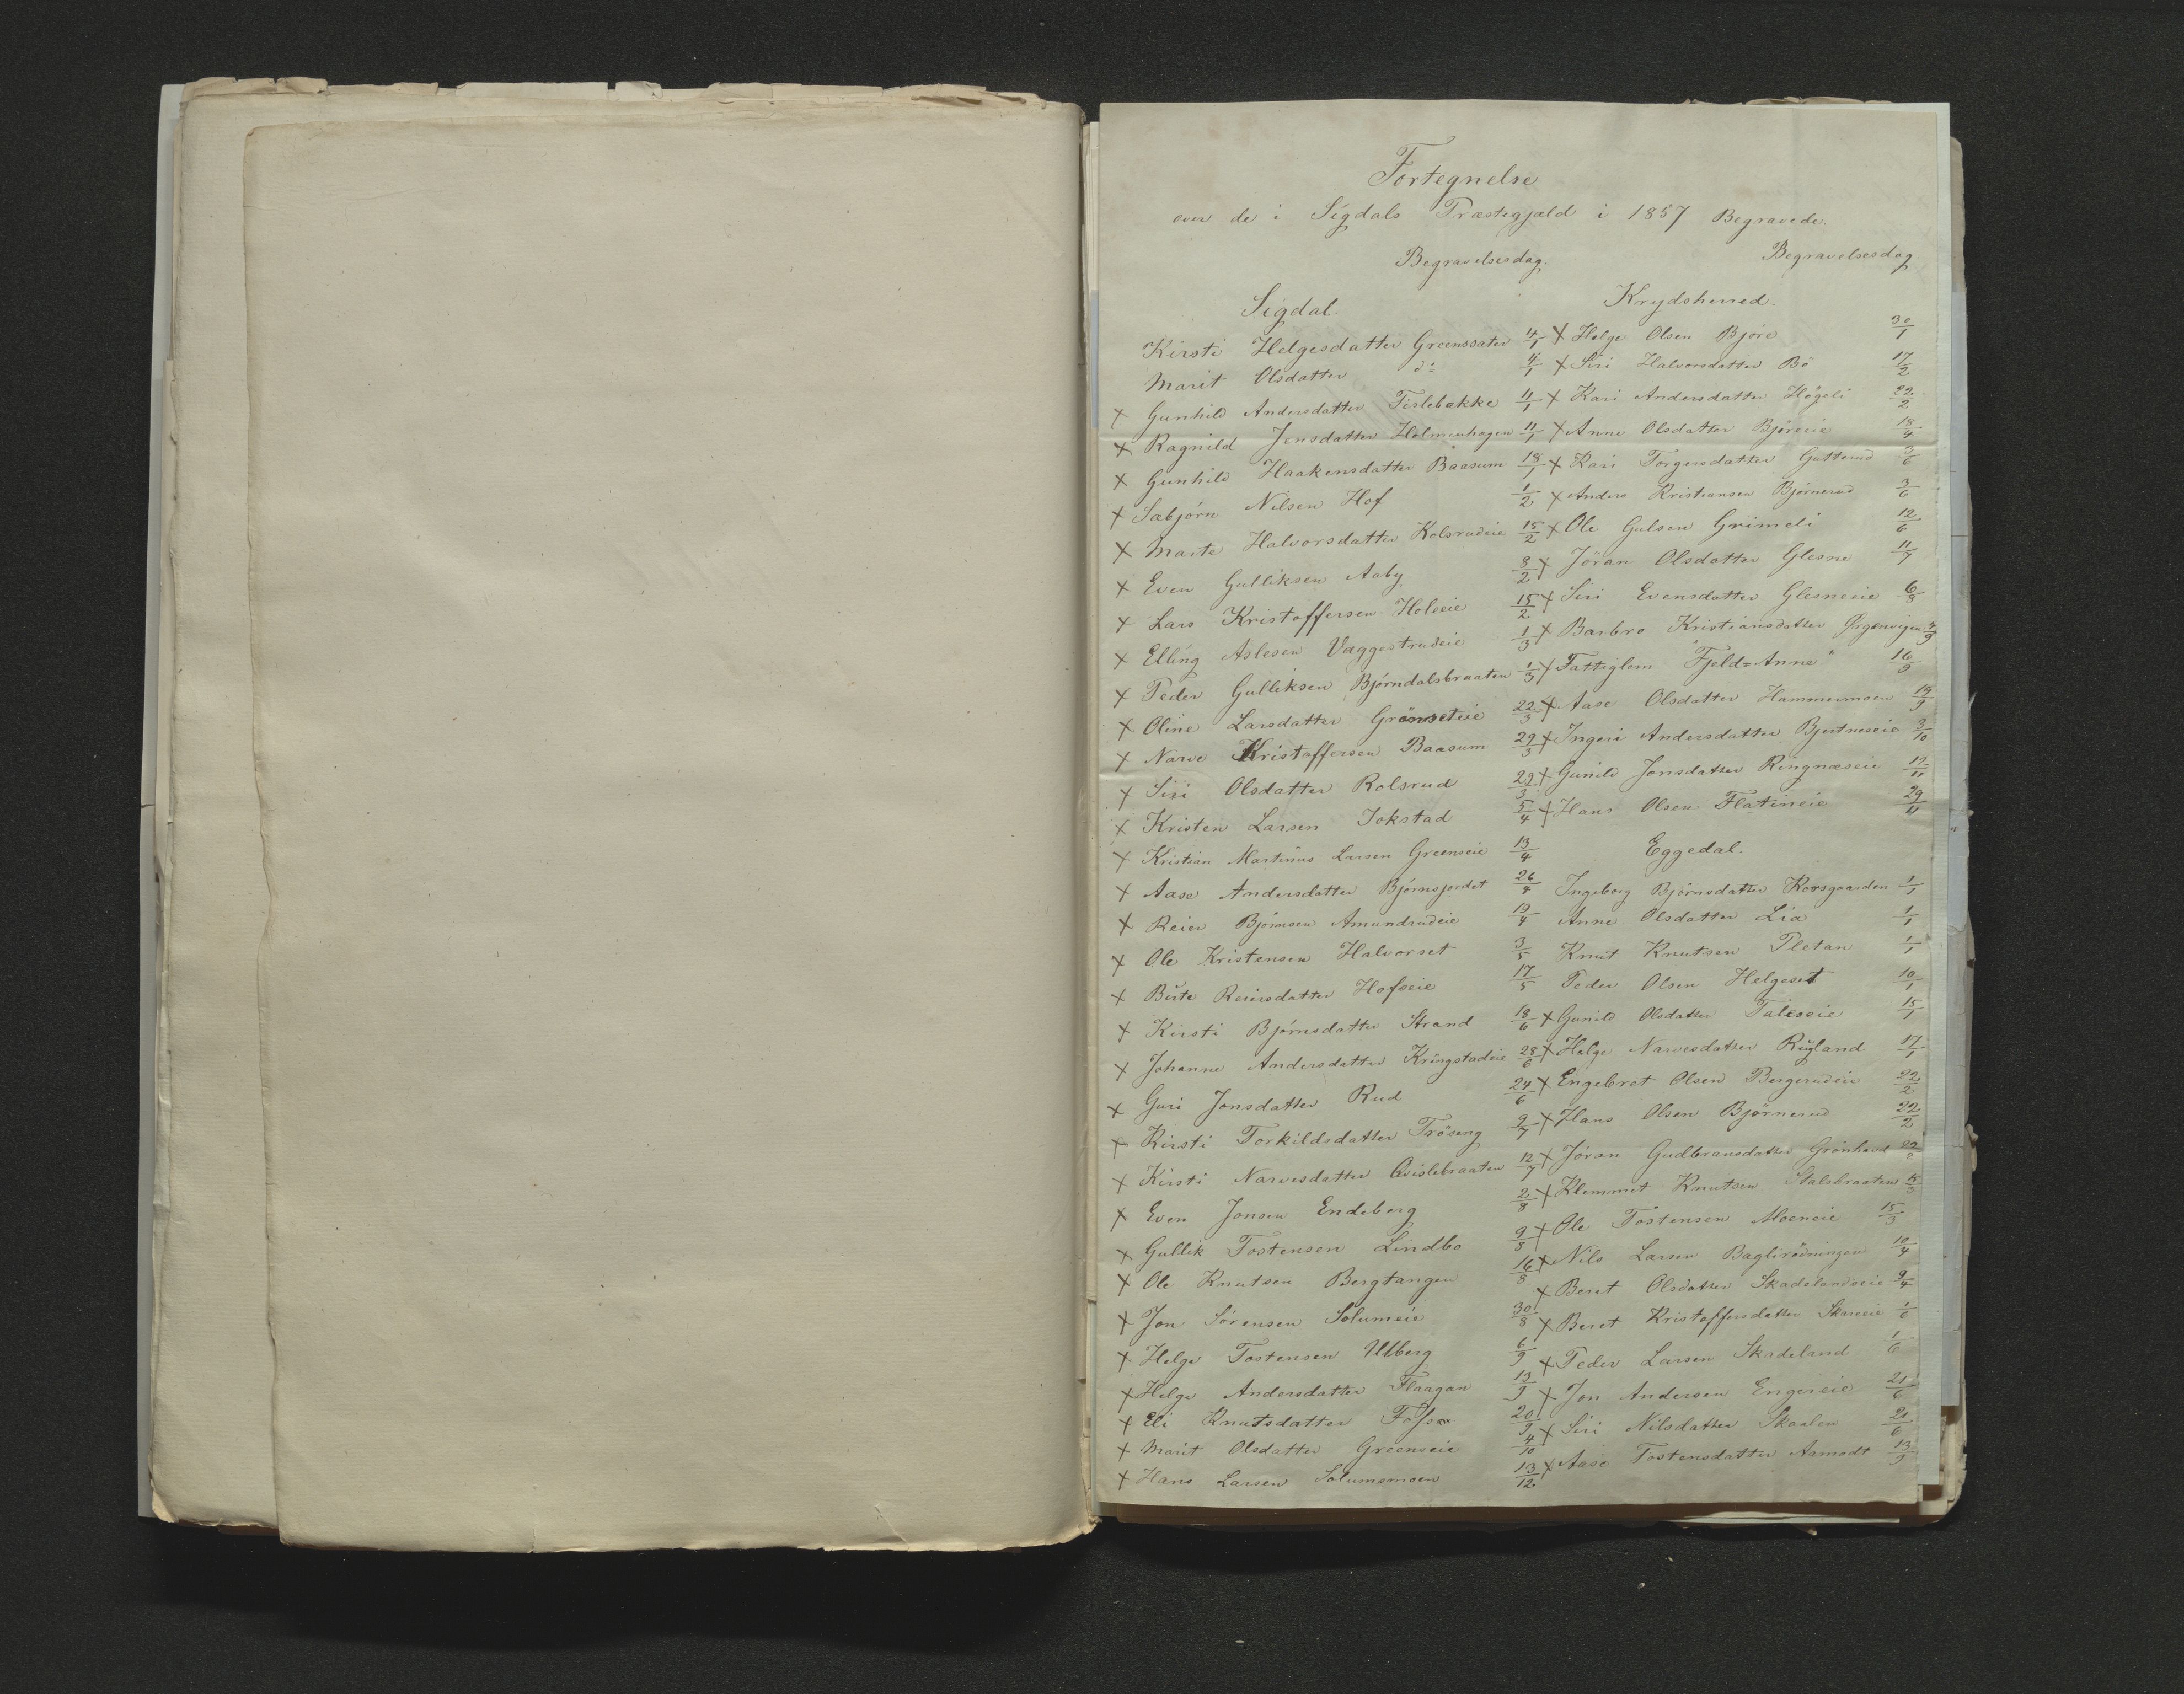 Fortegnelse
over de i Sigdals Præstegjæld i 1857 Begravede.
Begravelsesdag.
Sigdal
Kirsti Helgesdatter Greenssater 4/1
Marit Olsdatter do 4/1
x Gunhild Andersdatter Tislebakke 11/1
x Ragnild Jensdatter Holmenhagen 11/1
x Gunhild Haakensdatter Baasum 18/1
x Sabjörn Nilsen Hof 1/2
x Marte Halvorsdatter Kolsrudeie 15/2
x Even Gulliksen Aaby 8/2
x Lars Kristoffersen Holeeie 15/2
x Elling Aslesen Vaggestrudeie 1/3
x Peder Gulliksen Björndalsbraaten 1/3
x Oline Larsdatter Grönseteie 22/3
x Narve Kristoffersen Baasum 29/3
x Siri Olsdatter Rolsrud 29/3
x Kristen Larsen Jokstad 5/4
x Kristian Martinus Larsen Greenseie 13/4
x Aase Andersdatter Björnsjordet 26/4
x Reier Björnsen Amundrudeie 19/4
x Ole Kristensen Halvorset 3/5
x Birte Reiersdatter Hofseie 17/5
x Kirsti Björnsdatter Strand 18/6
x Johanne Andersdatter Kringstadeie 28/6
x Guri Jonsdatter Rud 24/6
x Kirsti Torkildsdatter Tröseng 9/7
x Kirsti Narvesdatter Qvislebraaten 12/7
x Even Jonsen Endeberg 2/8
x Gullik Tostensen Lindbo 9/8
x Ole Knutsen Bergtangen 16/8
x Jon Sörensen Solumeie 30/8
x Helge Tostensen Ulberg 6/9
x Helge Andersdatter Flaagan 13/9
x Eli Knutsdatter 20/9
x Marit Olsdatter Greenseie 4/10
x Hans Larsen Solumsmoen 13/12
Begravelsesdag
Krydsherred.
x Helge Olsen Björe 30/1
x Siri Halvorsdatter Bö 17/2
x Kari Andersdatter Högeli 22/2
x Anne Olsdatter Björeeie 18/4
x Kari Torgersdatter Gutterud 3/6
x Anders Kristiansen Björnerud 3/6
x Ole Gulsen Grimeli 12/6
x Jöran Olsdatter Glesne 11/7
x Siri Evensdatter Glesneeie 6/8
x Barbro Kristiansdatter Ørgenvigen 4/9
x Fattiglem "Fjeld=Anne" 16/9
x Aase Olsdatter Hammermoen 19/9
x Ingeri Andersdatter Bjertneseie 3/10
x Gunild Jonsdatter Ringnæseie 17/11
x Hans Olsen Flatineie 29/11
Eggedal.
Ingeborg Björnsdatter Korsgaarden 1/1
Anne Olsdatter Lia 1/1
Knut Knutsen Pletan 1/1
Peder Olsen Helgeset 10/1
x Gunild Olsdatter Taleseie 15/1
x Helge Narvesdatter Rugland 17/1
x Engebret Olsen Bergerudeie 22/2
x Hans Olsen Björnerud 22/2
x Jöran Gudbransdatter Grönhovd 22/2
x Klemmet Knutsen Stalsbraaten 15/3
x Ole Tostensen Moeneie 15/3
x Nils Larsen Baglirödningen 10/4
x Beret Olsdatter Skadelandseie 9/4
x Beret Kristoffersdatter Skareeie 1/6
x Peder Larsen Skadeland 1/6
x Jon Andersen Engeneie 21/6
x Siri Nilsdatter Skaalen 21/6
x Aase Tostensdatter Aamodt 13/9